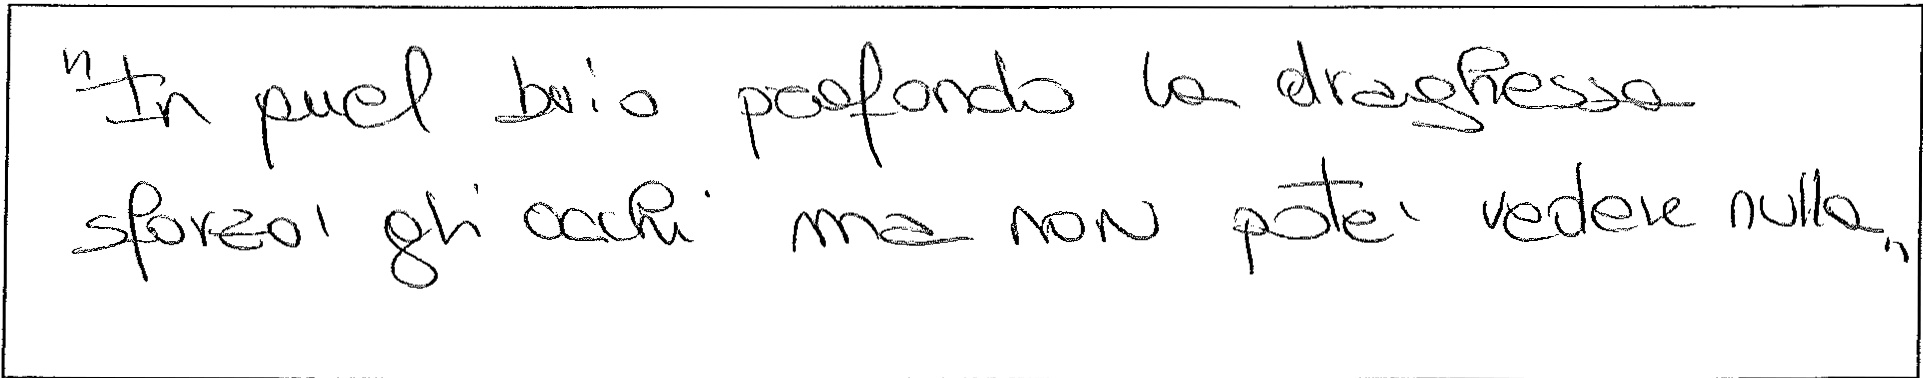 "In quel buio profondo la draghessa
sforzo' gli occhi ma non pote' vedere nulla"